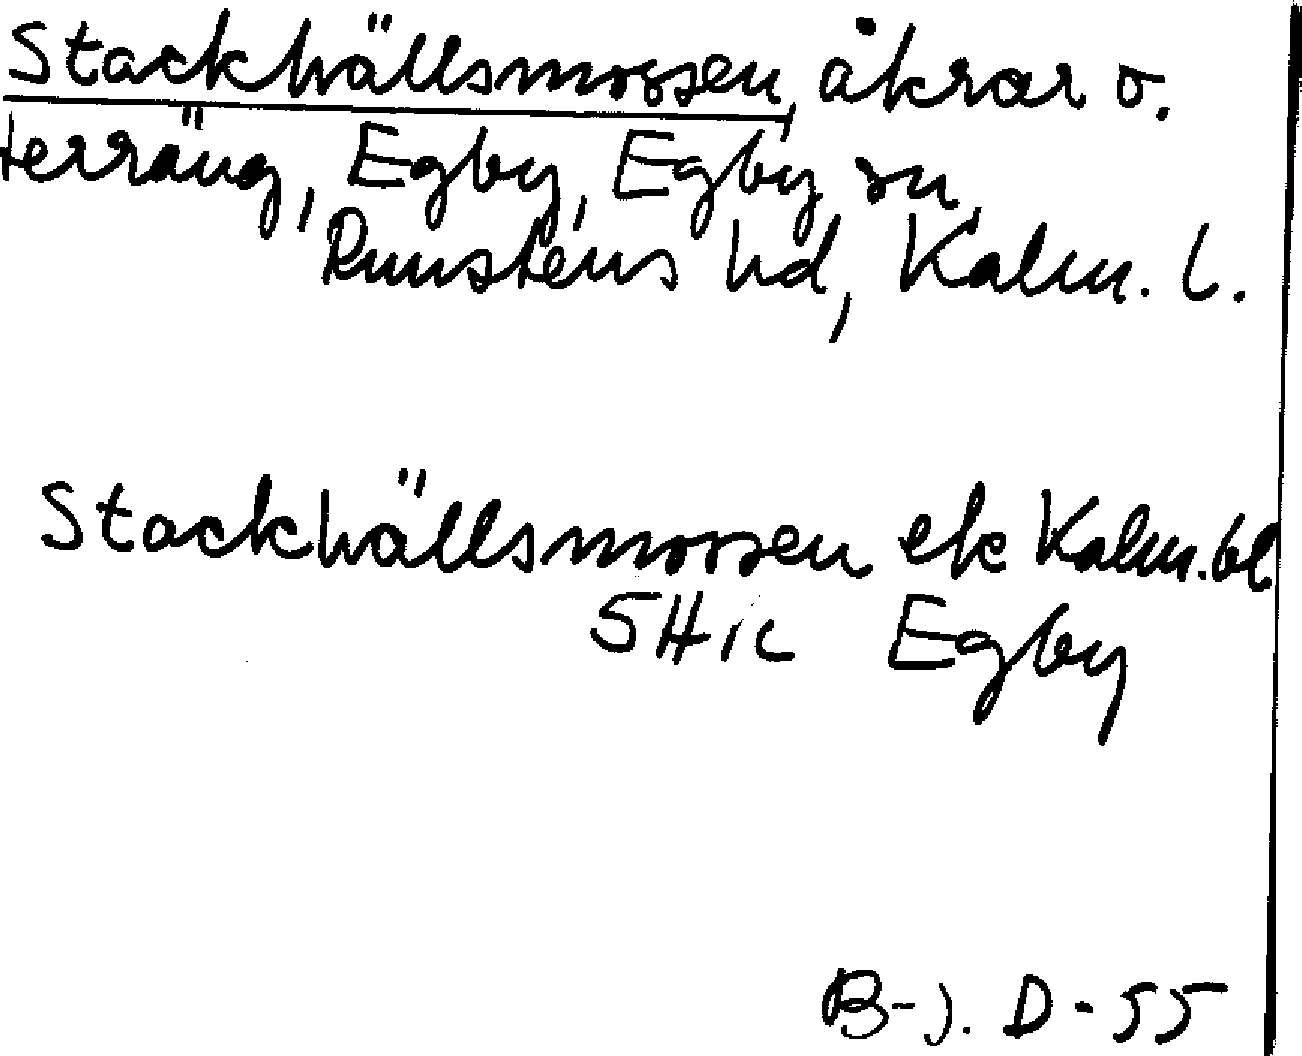 Stackhällsmossen, åkrar o.
terräng, Egby, Egby sn,
Runstens hd, Kalm. l.
Stackhällsmossen ek Kalm. bl
5H 1c Egby
B-J. D-55